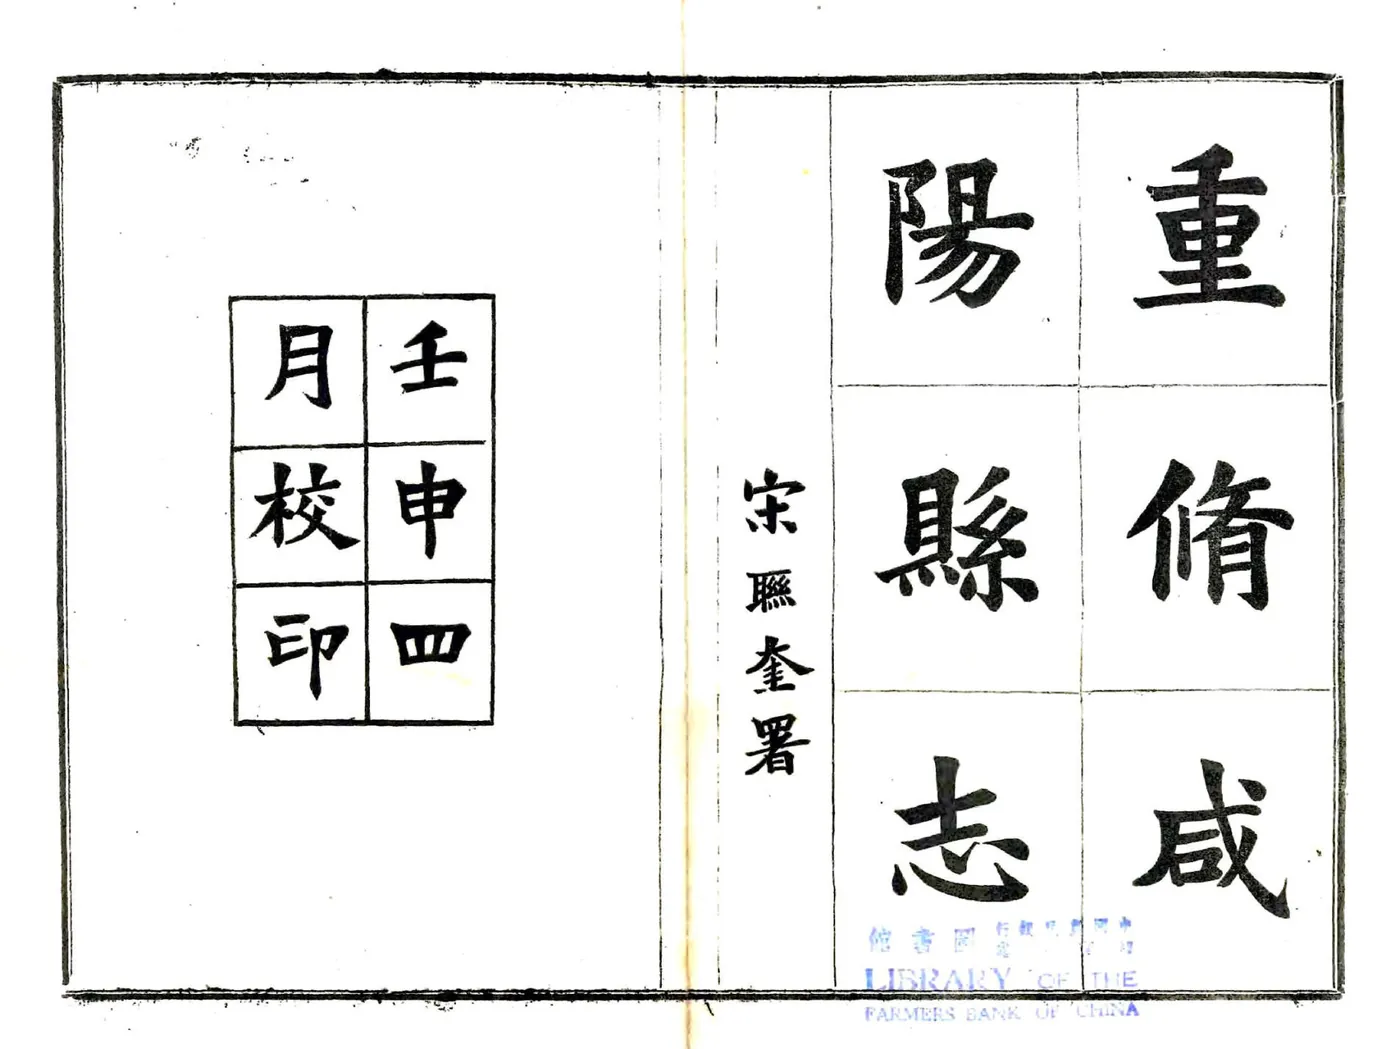 重脩咸
陽縣志
宋聯奎署
壬申四
月校印
圖書館
LIBRARY OF THE
FARMERS BANK OF CHINA